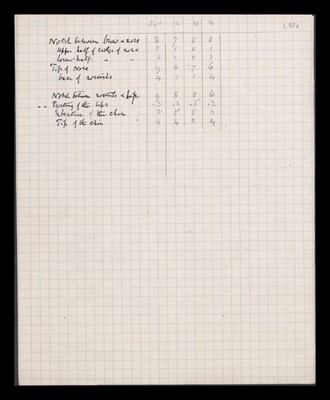 Notch between brow & nose 8 7 8 8
Upper half of ridge of nose 3 1 6 1
lower half " "
Tip of nose 9 6 7 6
base of nostrils 4 1 1 4
Notch between nostrils & lip 4 8 8 6
Parting of the lips .3 .2 .5 .2
Indenture of the chin 3 5 5
Tip of the chin 4 4 2 4